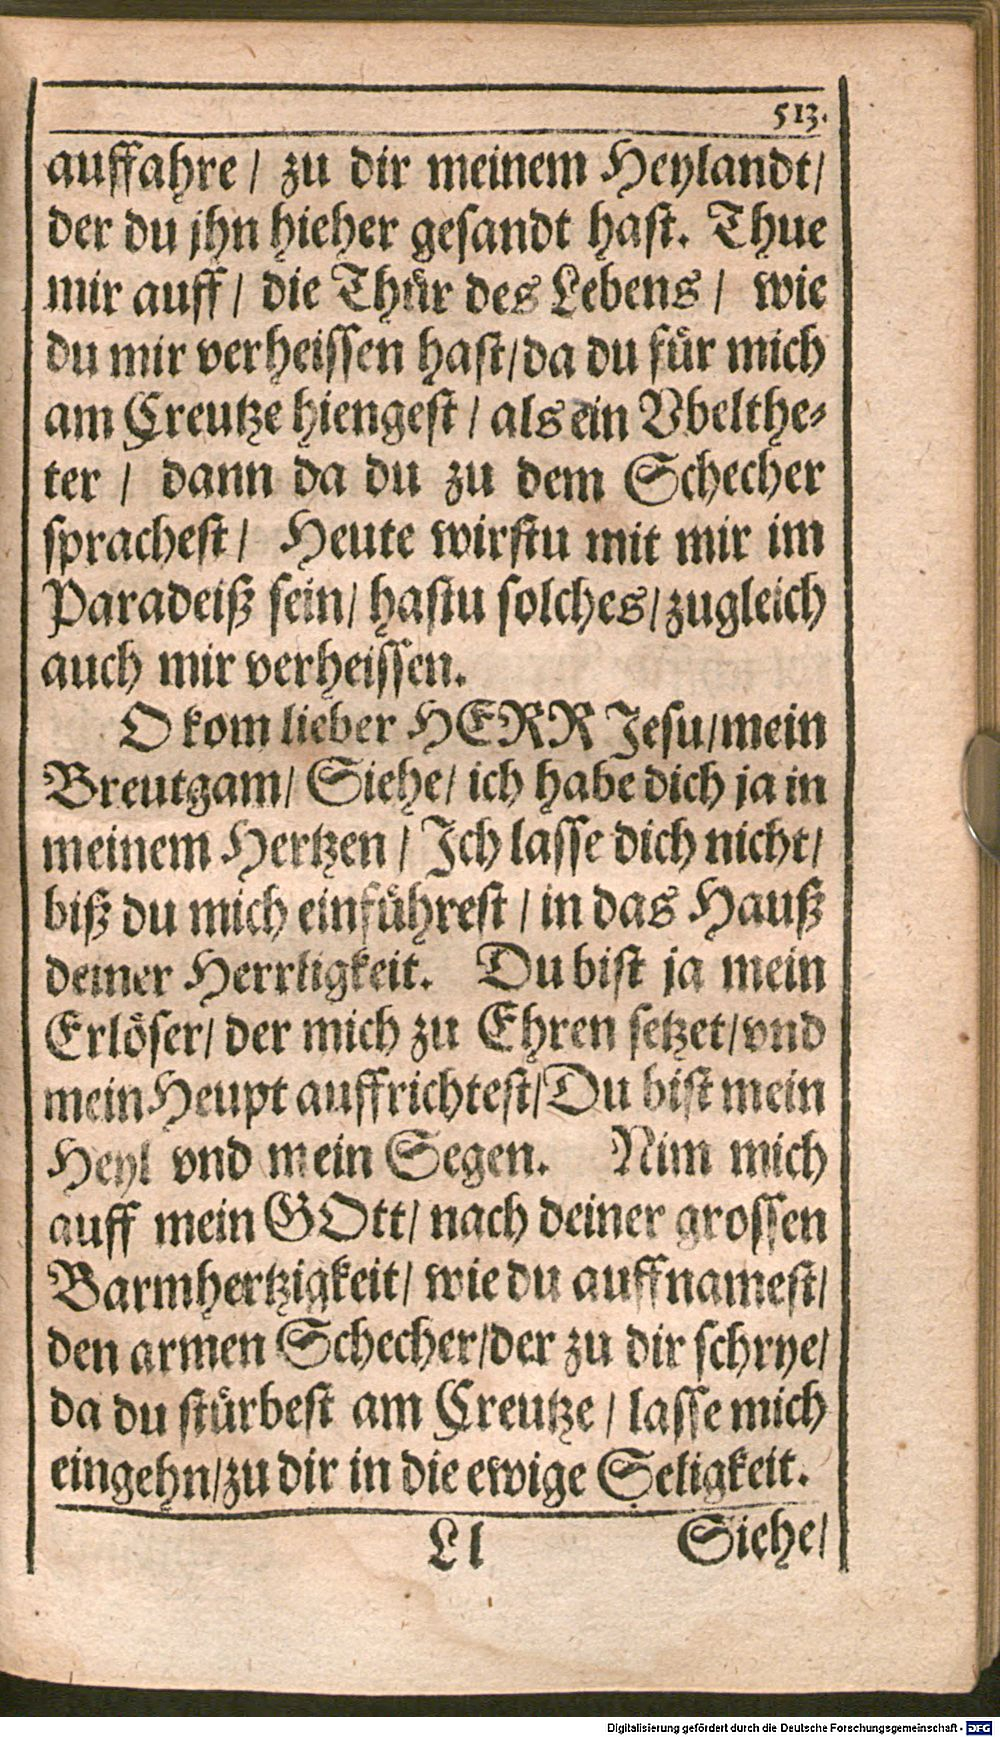 513.
auffahre / zu dir meinem Heylandt/
der du jhn hieher gesandt hast. Thue
mir auff / die Thuͤr des Lebens / wie
du mir verheissen hast/da du fuͤr mich
am Creutze hiengest / als ein Vbelthe⸗
ter / dann da du zu dem Schecher
sprachest / Heute wirstu mit mir im
Paradeiß sein/ hastu solches/zugleich
auch mir verheissen.
O kom lieber HERR Jesu/mein
Breutgam/ Siehe/ ich habe dich ja in
meinem Hertzen / Ich lasse dich nicht/
biß du mich einfuͤhrest / in das Hauß
deiner Herrligkeit. Du bist ja mein
Erloͤser/ der mich zu Ehren setzet/vnd
mein Heupt auffrichtest/Du bist mein
Heyl vnd mein Segen. Nim mich
auff mein GOtt/ nach deiner grossen
Barmhertzigkeit/ wie du auffnamest/
den armen Schecher/der zu dir schrye/
da du stuͤrbest am Creutze / lasse mich
eingehn/zu dir in die ewige Seligkeit.
Ll Siehe/
Digitalisierung gefördert durch die Deutsche Forschungsgemeinschaft - DFG